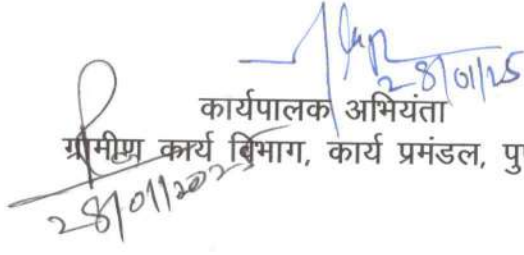 28/01/25
कार्यपालक अभियंता
ग्रामीण कार्य विभाग, कार्य प्रमंडल, पु
28/01/2025